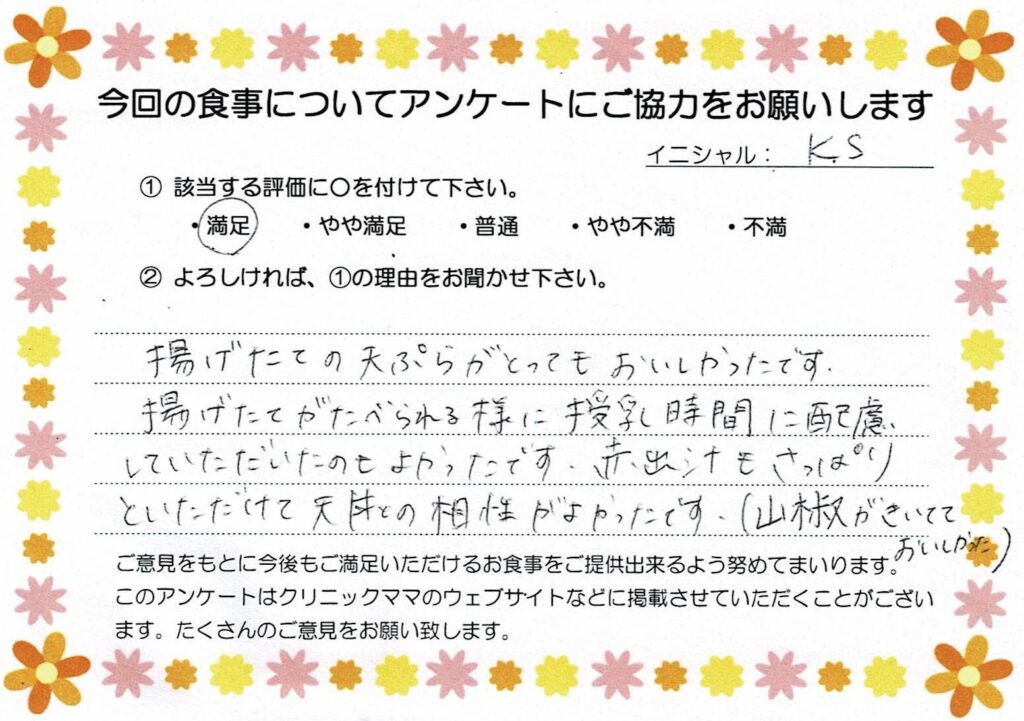 今回の食事についてアンケートにご協力をお願いします
イニシャル： K.S
① 該当する評価に○を付けて下さい。
・満足 ・やや満足 ・普通 ・やや不満 ・不満
② よろしければ、①の理由をお聞かせ下さい。
揚げたての天ぷらがとってもおいしかったです.
揚げたてがたべられる様に授乳時間に配慮、
していただいたのもよかったです. 赤出汁もさっぱり
といただけて天丼との相性がよかったです.（山椒がきいてて
おいしかった）
ご意見をもとに今後もご満足いただけるお食事をご提供出来るよう努めてまいります。
このアンケートはクリニックママのウェブサイトなどに掲載させていただくことがござい
ます。たくさんのご意見をお願い致します。